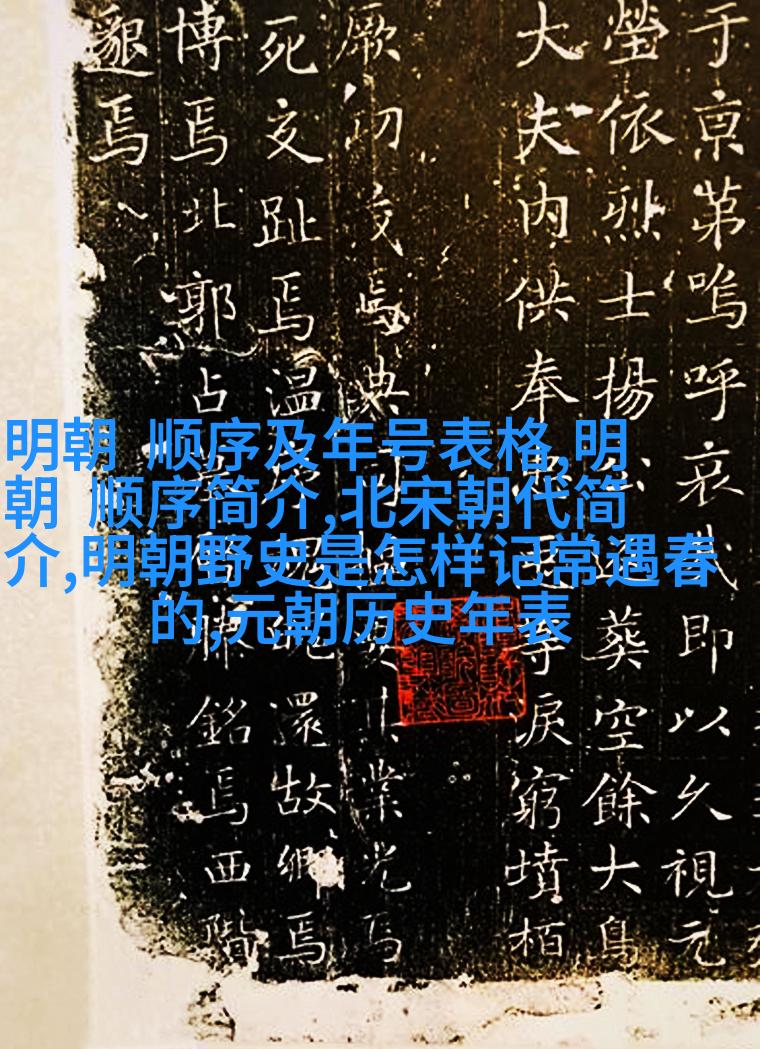 明朝 顺序及年号表格,明
朝 顺序简介,北宋朝代简
介,明朝野史是怎样记常遇春
的,元朝历史年表
于京第嗚呼哀哉即以久視元
塋依烈士揚葬空餘大鳥
大夫内供奉等淚窮墳栢
厥典業光焉
死交趾焉温還故鄉焉
博焉北郭占銘焉西階
邈焉